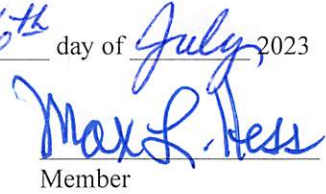 th day of July, 2023
Max L. Hess
Member